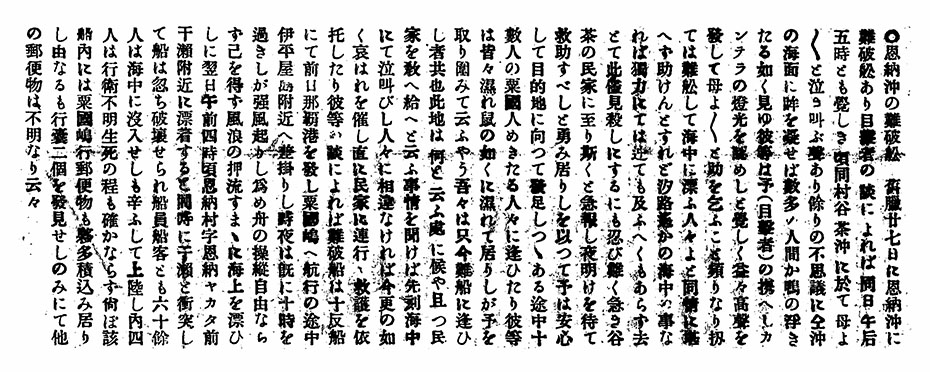 〇恩納沖の難破舩　舊臘廿七日に恩納沖に
難破舩あり目撃者の談によれば同日午后
五時とも覺しき頃同村谷茶沖に於て母よ
〱と泣き叫ぶ聲あり餘りの不思議に仝沖
の海面に眸を凝せば數多人間が鴨の浮き
たる如く見ゆ彼等は予（目撃者）の携へしカ
ンテラの燈光を認めしと覺しく益々高聲を
發して母よ〱と助を乞ふこと頻りなり扨
ては難舩して海中に漂ふ人々よと同情に
へず助けんとすれど汐路遙かの海中の事な
れば獨力にては迚ても及ふへくもあらず去
とて此儘見殺しにするにも忍び難く急き谷
茶の民家に至り斯くと急報し夜明けを待て
救助すべしと勇み居りしを以つて予は安心
して目的地に向つて發足しつゝある途中十
數人の粟國人めきたる人々に逢ひたり彼等
は皆々濡れ鼠の如くに濡れて居りしが予を
取り圍みて云ふやう吾々は只今難船に逢ひ
し者共也此地は何と云ふ處に候や且つ民
家を敎へ給へと云ふ事情を聞けば先刻海中
にて泣叫びし人々に相違なければ今更の如
く哀はれを催し直に民家に連行き救護を依
托したり彼等の談によれば難破船は十反船
にて前日那覇港を發し粟國嶋へ航行の途中
伊平屋嶋附近へ差掛りし時夜は既に十時を
過きしが强風起りし爲め舟の操縱自由なら
ず己を得ず風浪の押流すまゝに海上を漂ひ
しに翌日午前四時頃恩納村字恩納ヤカタ前
干瀬附近に漂着すると同時に干瀬と衝突し
て船は忽ち破壞せられ船員船客とも六十餘
人は海中に沒入せしも辛ふして上陸し内四
人は行衛不明生死の程も確かならず尙ほ該
船内には粟國嶋行郵便物も夥多積込み居り
し由なるも行嚢二個を發見せしのみにて他
の郵便物は不明なり云々